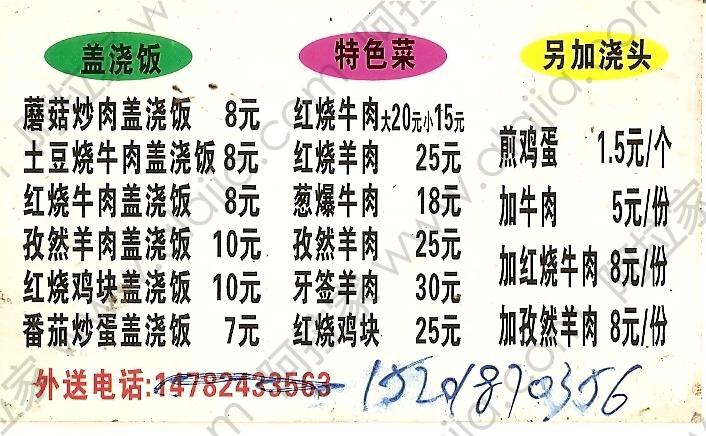 盖浇饭
蘑菇炒肉盖浇饭 8元
土豆烧牛肉盖浇饭 8元
红烧牛肉盖浇饭 8元
孜然羊肉盖浇饭 10元
红烧鸡块盖浇饭 10元
番茄炒蛋盖浇饭 7元
特色菜
红烧牛肉大20元小15元
红烧羊肉 25元
葱爆牛肉 18元
孜然羊肉 25元
牙签羊肉 30元
红烧鸡块 25元
另加浇头
煎鸡蛋 1.5元/个
加牛肉 5元/份
加红烧牛肉 8元/份
加孜然羊肉 8元/份
外送电话:14782433563